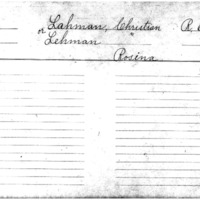 Lahman, Christian R.
or Lehman "
Rosina